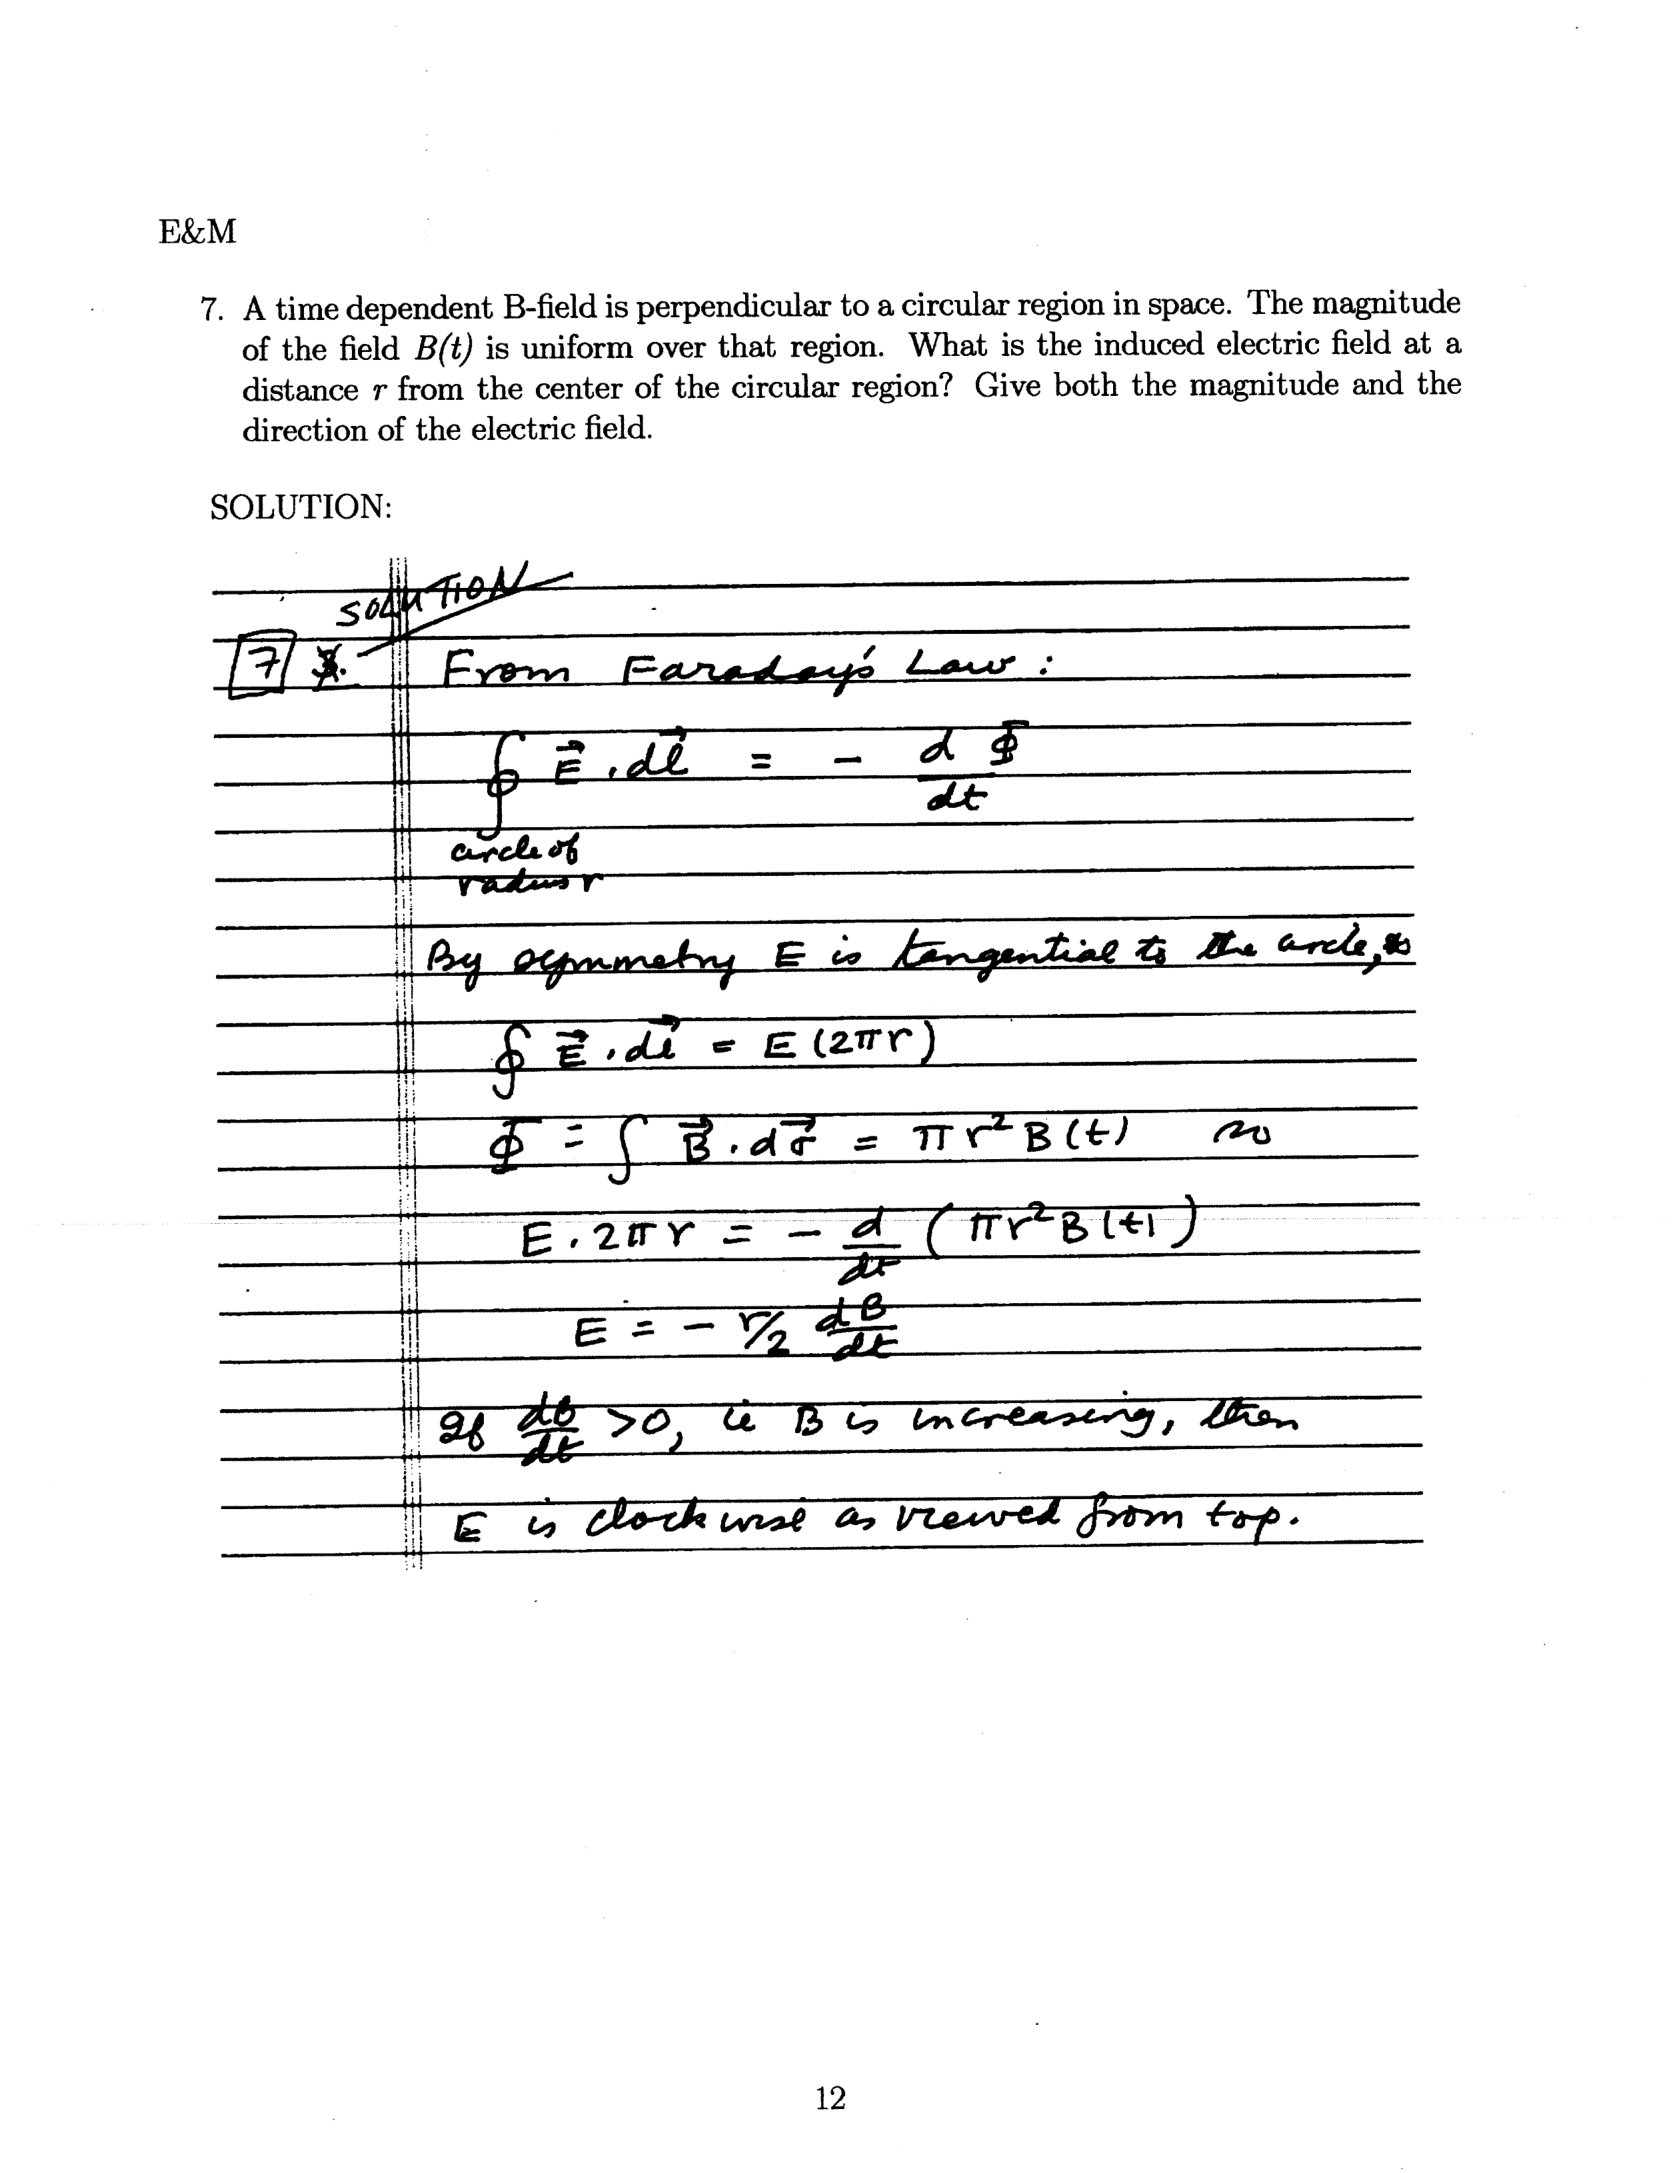 E&M
7. A time dependent B-field is perpendicular to a circular region in space. The magnitude
of the field B(t) is uniform over that region. What is the induced electric field at a
distance r from the center of the circular region? Give both the magnitude and the
direction of the electric field.
SOLUTION:
SOLUTION
7 From Faraday's Law:
∮ E⃗ . dl⃗ = - dΦ/dt
circle of
radius r
By symmetry E is tangential to the circle, so
∮ E⃗ . dl⃗ = E (2πr)
Φ = ∫ B⃗ . dσ⃗ = πr² B(t) so
E . 2πr = - d/dt (πr² B(t))
E = - r/2 dB/dt
If dB/dt >0, ie B is increasing, then
E is clockwise as viewed from top.
12